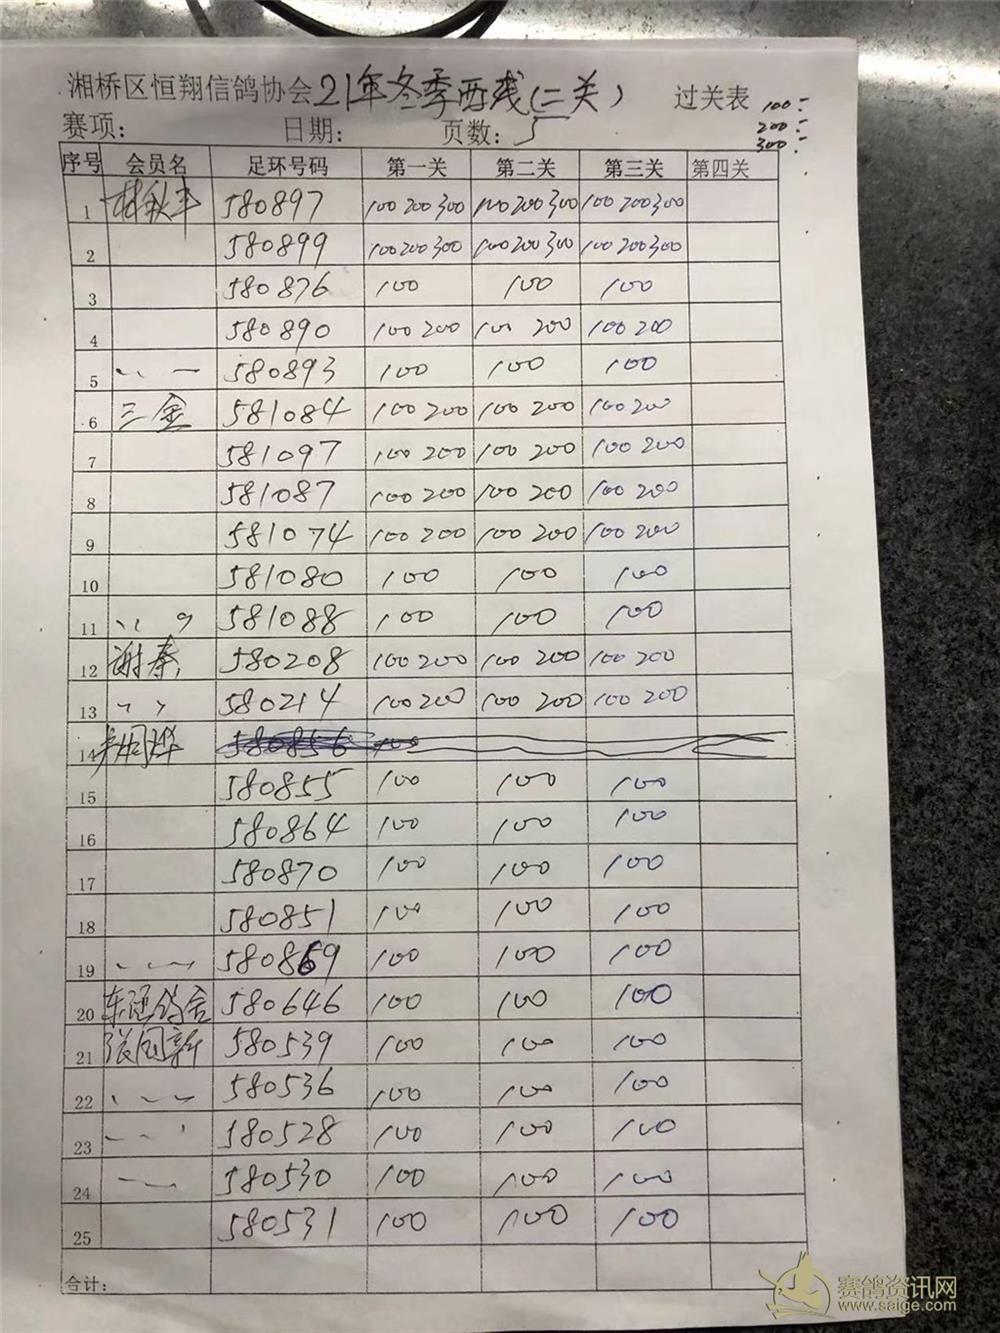 湘桥区恒翔信鸽协会21年冬季西线(二关) 过关表 100:
200:
赛项: 日期: 页数: 5 300:
序号 会员名 足环号码 第一关 第二关 第三关 第四关
1 林秋丰 580897 100 200 300 100 200 300 100 200 300
2 580899 100 200 300 100 200 300 100 200 300
3 580876 100 100 100
4 580890 100 200 100 200 100 200
5 580893 100 100 100
6 三金 581084 100 200 100 200 100 200
7 581097 100 200 100 200 100 200
8 581087 100 200 100 200 100 200
9 581074 100 200 100 200 100 200
10 581080 100 100 100
11 581088 100 100 100
12 谢泰 580208 100 200 100 200 100 200
13 580214 100 200 100 200 100 200
14 580856 100
15 580855 100 100 100
16 580864 100 100 100
17 580870 100 100 100
18 580851 100 100 100
19 580869 100 100 100
20 580646 100 100 100
21 张国新 580539 100 100 100
22 580536 100 100 100
23 580528 100 100 100
24 580530 100 100 100
25 580531 100 100 100
合计:
赛鸽资讯网
www.saige.com